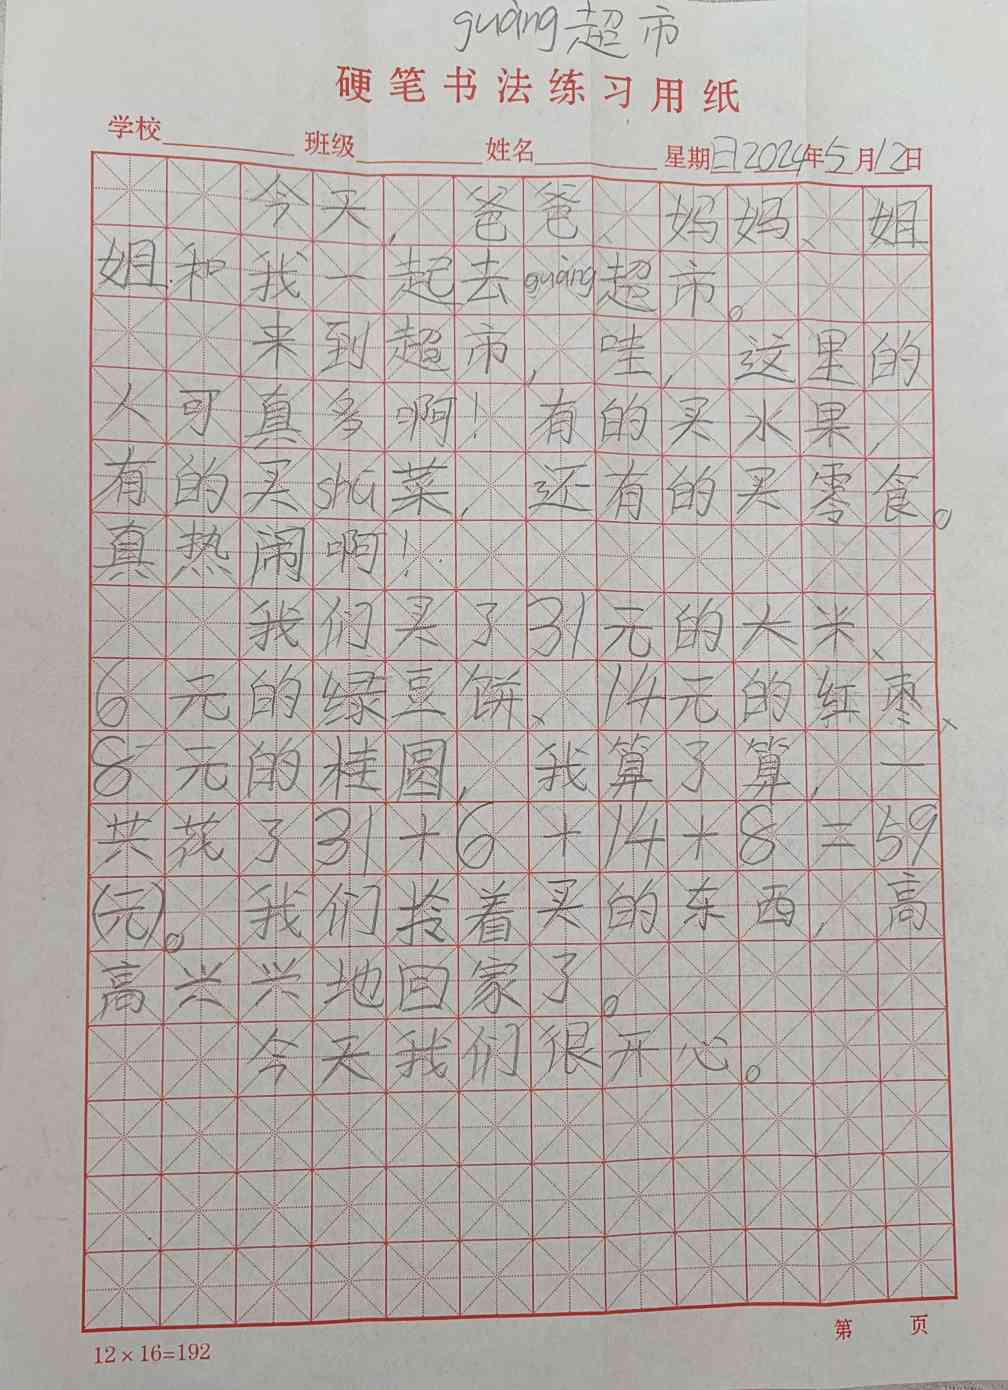 guàng超市
硬笔书法练习用纸
学校 班级 姓名 星期日2024年5月12日
今天,爸爸、妈妈、姐
姐和我一起去guàng超市。
来到超市,哇,这里的
人可真多啊!有的买水果,
有的买shū菜,还有的买零食。
真热闹啊!
我们买了31元的大米、
6元的绿豆饼、14元的红枣、
8元的桂圆,我算了算,一
共花了31+6+14+8=59
(元)。我们拎着买的东西,高
高兴兴地回家了。
今天我们很开心。
第 页
12×16=192